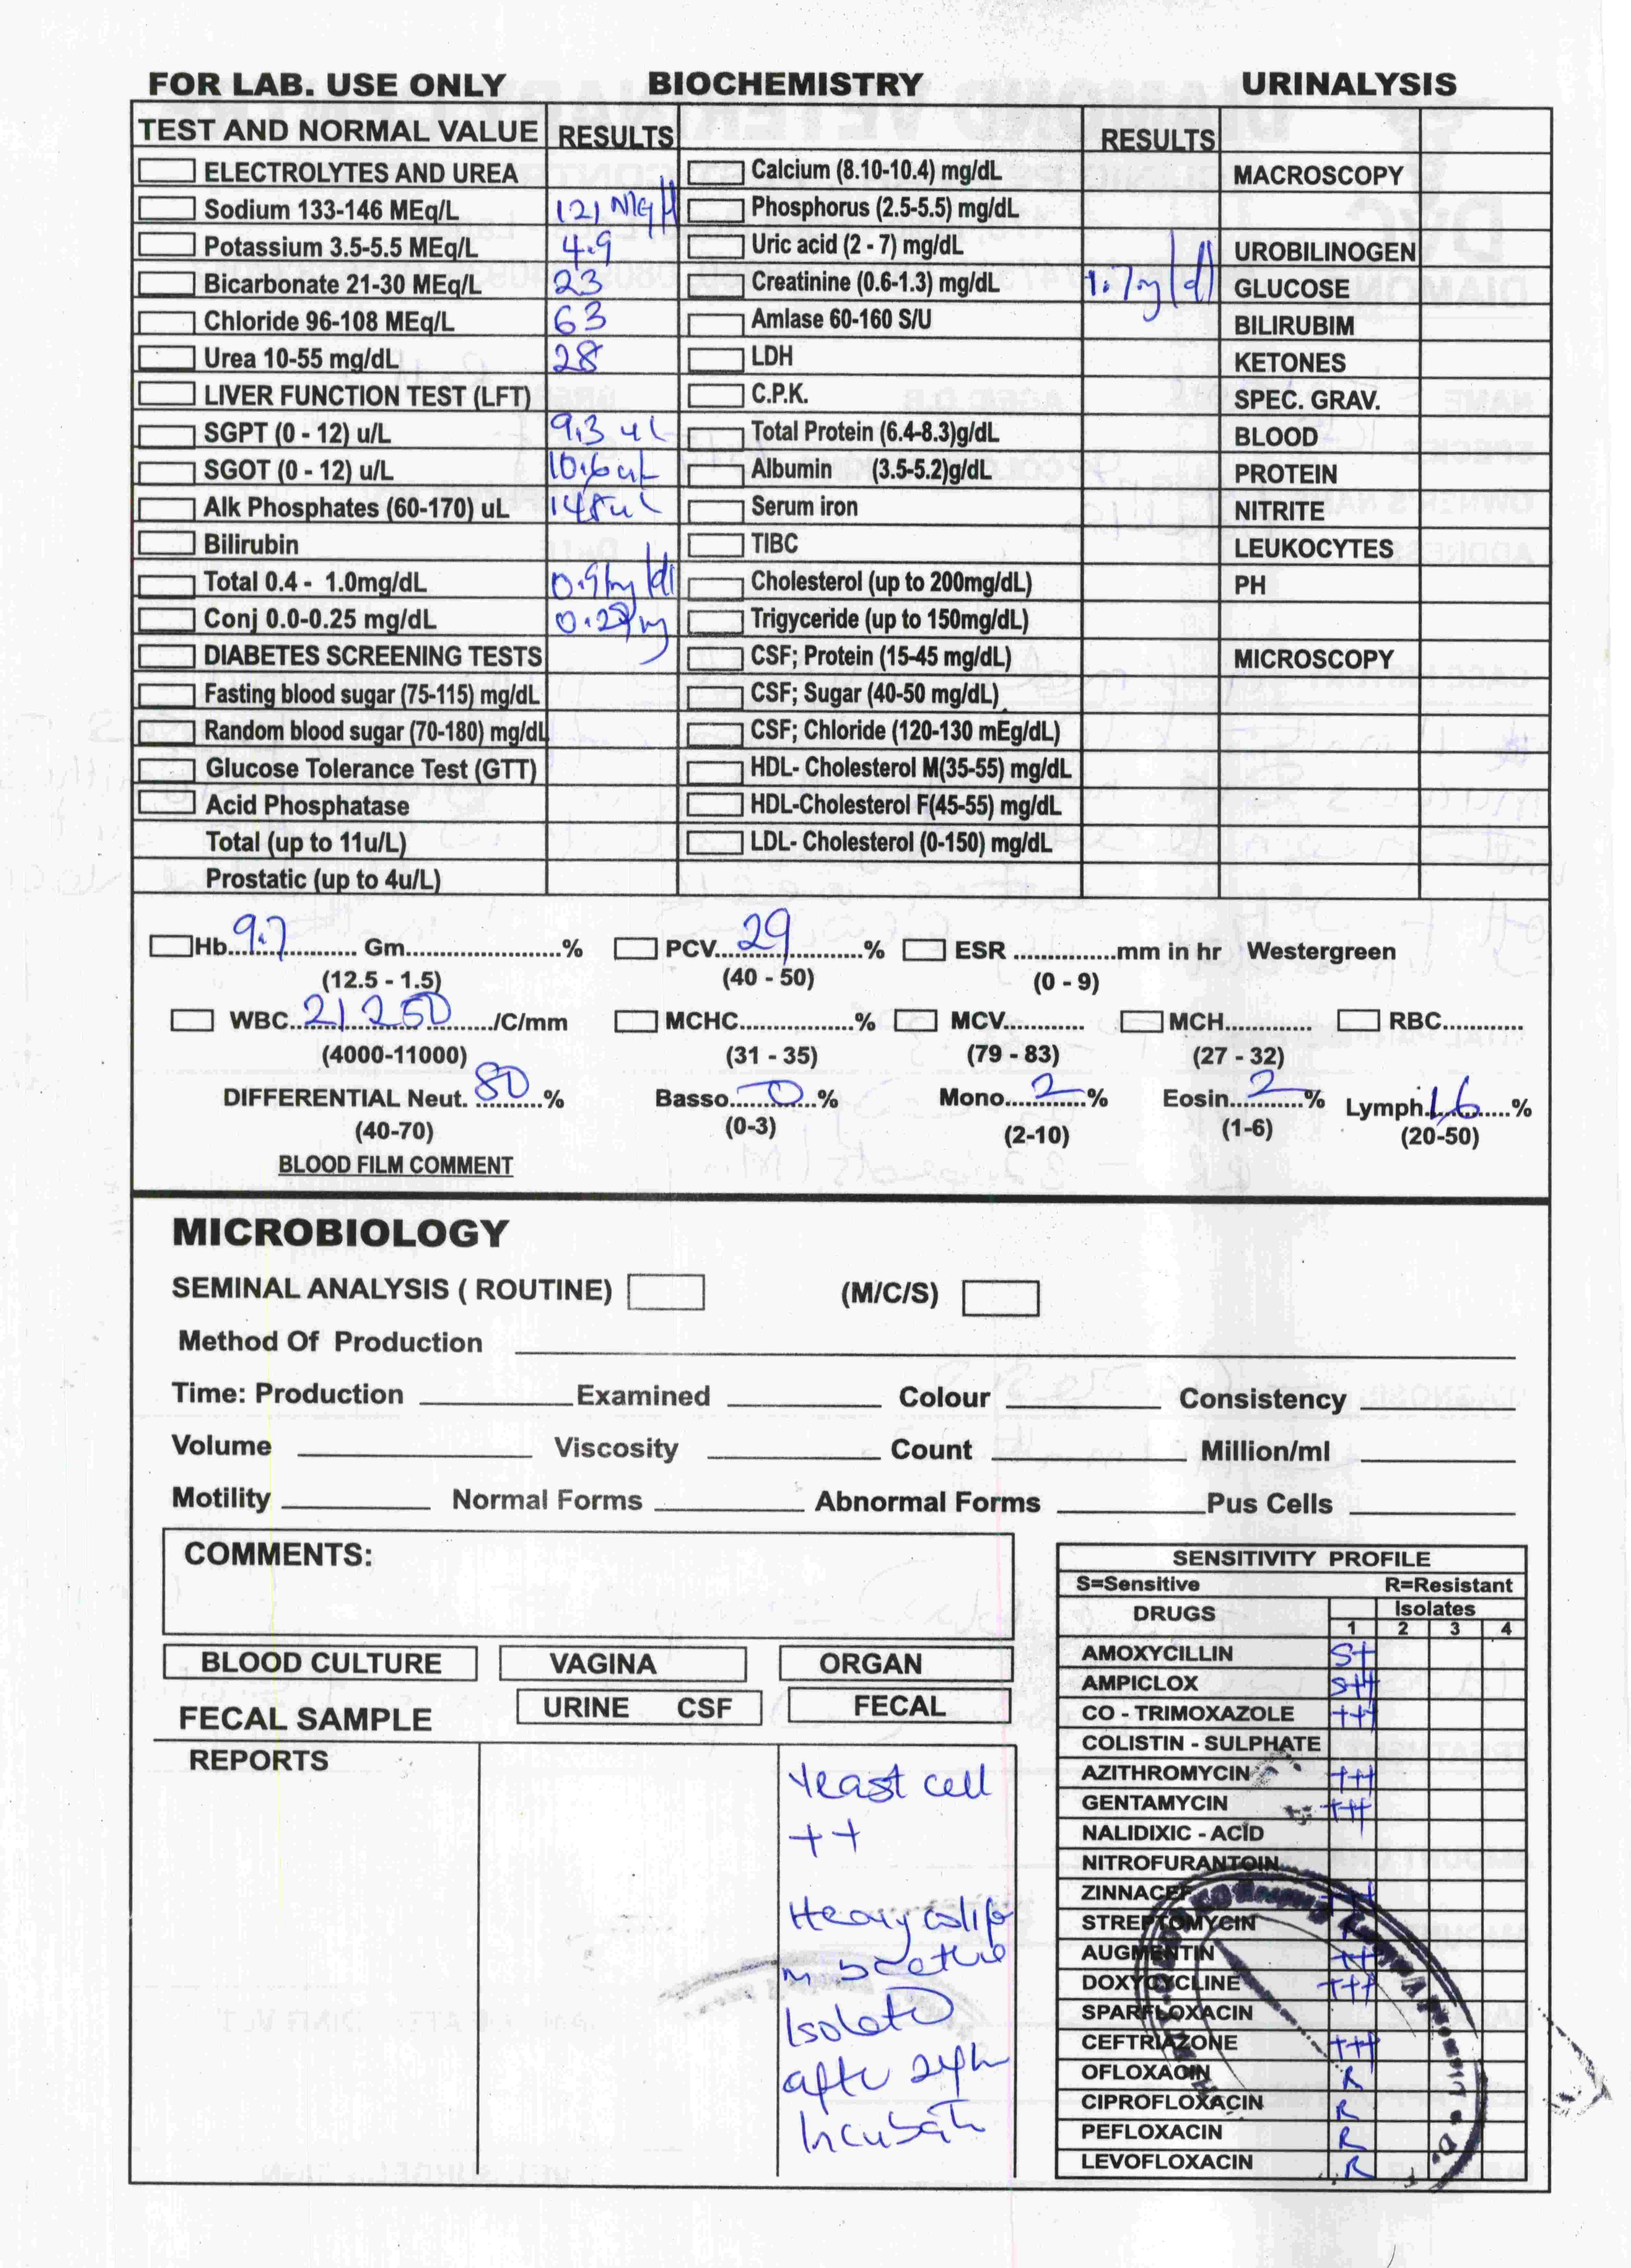 FOR LAB. USE ONLY BIOCHEMISTRY URINALYSIS
TEST AND NORMAL VALUE RESULTS RESULTS
ELECTROLYTES AND UREA Calcium (8.10-10.4) mg/dL MACROSCOPY
Sodium 133-146 MEq/L 121 Phosphorus (2.5-5.5) mg/dL
Potassium 3.5-5.5 MEq/L 4.9 Uric acid (2 - 7) mg/dL UROBILINOGEN
Bicarbonate 21-30 MEq/L 23 Creatinine (0.6-1.3) mg/dL GLUCOSE
Chloride 96-108 MEq/L 63 Amlase 60-160 S/U BILIRUBIM
Urea 10-55 mg/dL 28 LDH KETONES
LIVER FUNCTION TEST (LFT) C.P.K. SPEC. GRAV.
SGPT (0 - 12) u/L 9.3 uL Total Protein (6.4-8.3)g/dL BLOOD
SGOT (0 - 12) u/L 10.6 uL Albumin (3.5-5.2)g/dL PROTEIN
Alk Phosphates (60-170) uL 148 uL Serum iron NITRITE
Bilirubin TIBC LEUKOCYTES
Total 0.4 - 1.0mg/dL 0.9mg/dl Cholesterol (up to 200mg/dL) PH
Conj 0.0-0.25 mg/dL Trigyceride (up to 150mg/dL)
DIABETES SCREENING TESTS CSF; Protein (15-45 mg/dL) MICROSCOPY
Fasting blood sugar (75-115) mg/dL CSF; Sugar (40-50 mg/dL)
Random blood sugar (70-180) mg/dL CSF; Chloride (120-130 mEg/dL)
Glucose Tolerance Test (GTT) HDL- Cholesterol M(35-55) mg/dL
Acid Phosphatase HDL-Cholesterol F(45-55) mg/dL
Total (up to 11u/L) LDL- Cholesterol (0-150) mg/dL
Prostatic (up to 4u/L)
Hb 9.7 Gm % PCV 29 % ESR mm in hr Westergreen
(12.5 - 1.5) (40 - 50) (0 - 9)
WBC 21250 /C/mm MCHC % MCV MCH RBC
(4000-11000) (31 - 35) (79 - 83) (27 - 32)
DIFFERENTIAL Neut. 80 % Basso 0 % Mono 2 % Eosin 2 % Lymph 16 %
(40-70) (0-3) (2-10) (1-6) (20-50)
BLOOD FILM COMMENT
MICROBIOLOGY
SEMINAL ANALYSIS ( ROUTINE) (M/C/S)
Method Of Production
Time: Production Examined Colour Consistency
Volume Viscosity Count Million/ml
Motility Normal Forms Abnormal Forms Pus Cells
COMMENTS:
BLOOD CULTURE VAGINA ORGAN
FECAL SAMPLE URINE CSF FECAL
REPORTS
Yeast cell
++
Heavy colifo
m
Isolated
after 24h
SENSITIVITY PROFILE
S=Sensitive R=Resistant
DRUGS Isolates
1 2 3 4
AMOXYCILLIN S+
AMPICLOX S++
CO - TRIMOXAZOLE +++
COLISTIN - SULPHATE
AZITHROMYCIN +++
GENTAMYCIN +++
NALIDIXIC - ACID
NITROFURANTOIN
ZINNACEF
STREPTOMYCIN
AUGMENTIN
DOXYCYCLINE +++
SPARFLOXACIN
CEFTRIAZONE +++
OFLOXACIN R
CIPROFLOXACIN R
PEFLOXACIN R
LEVOFLOXACIN R